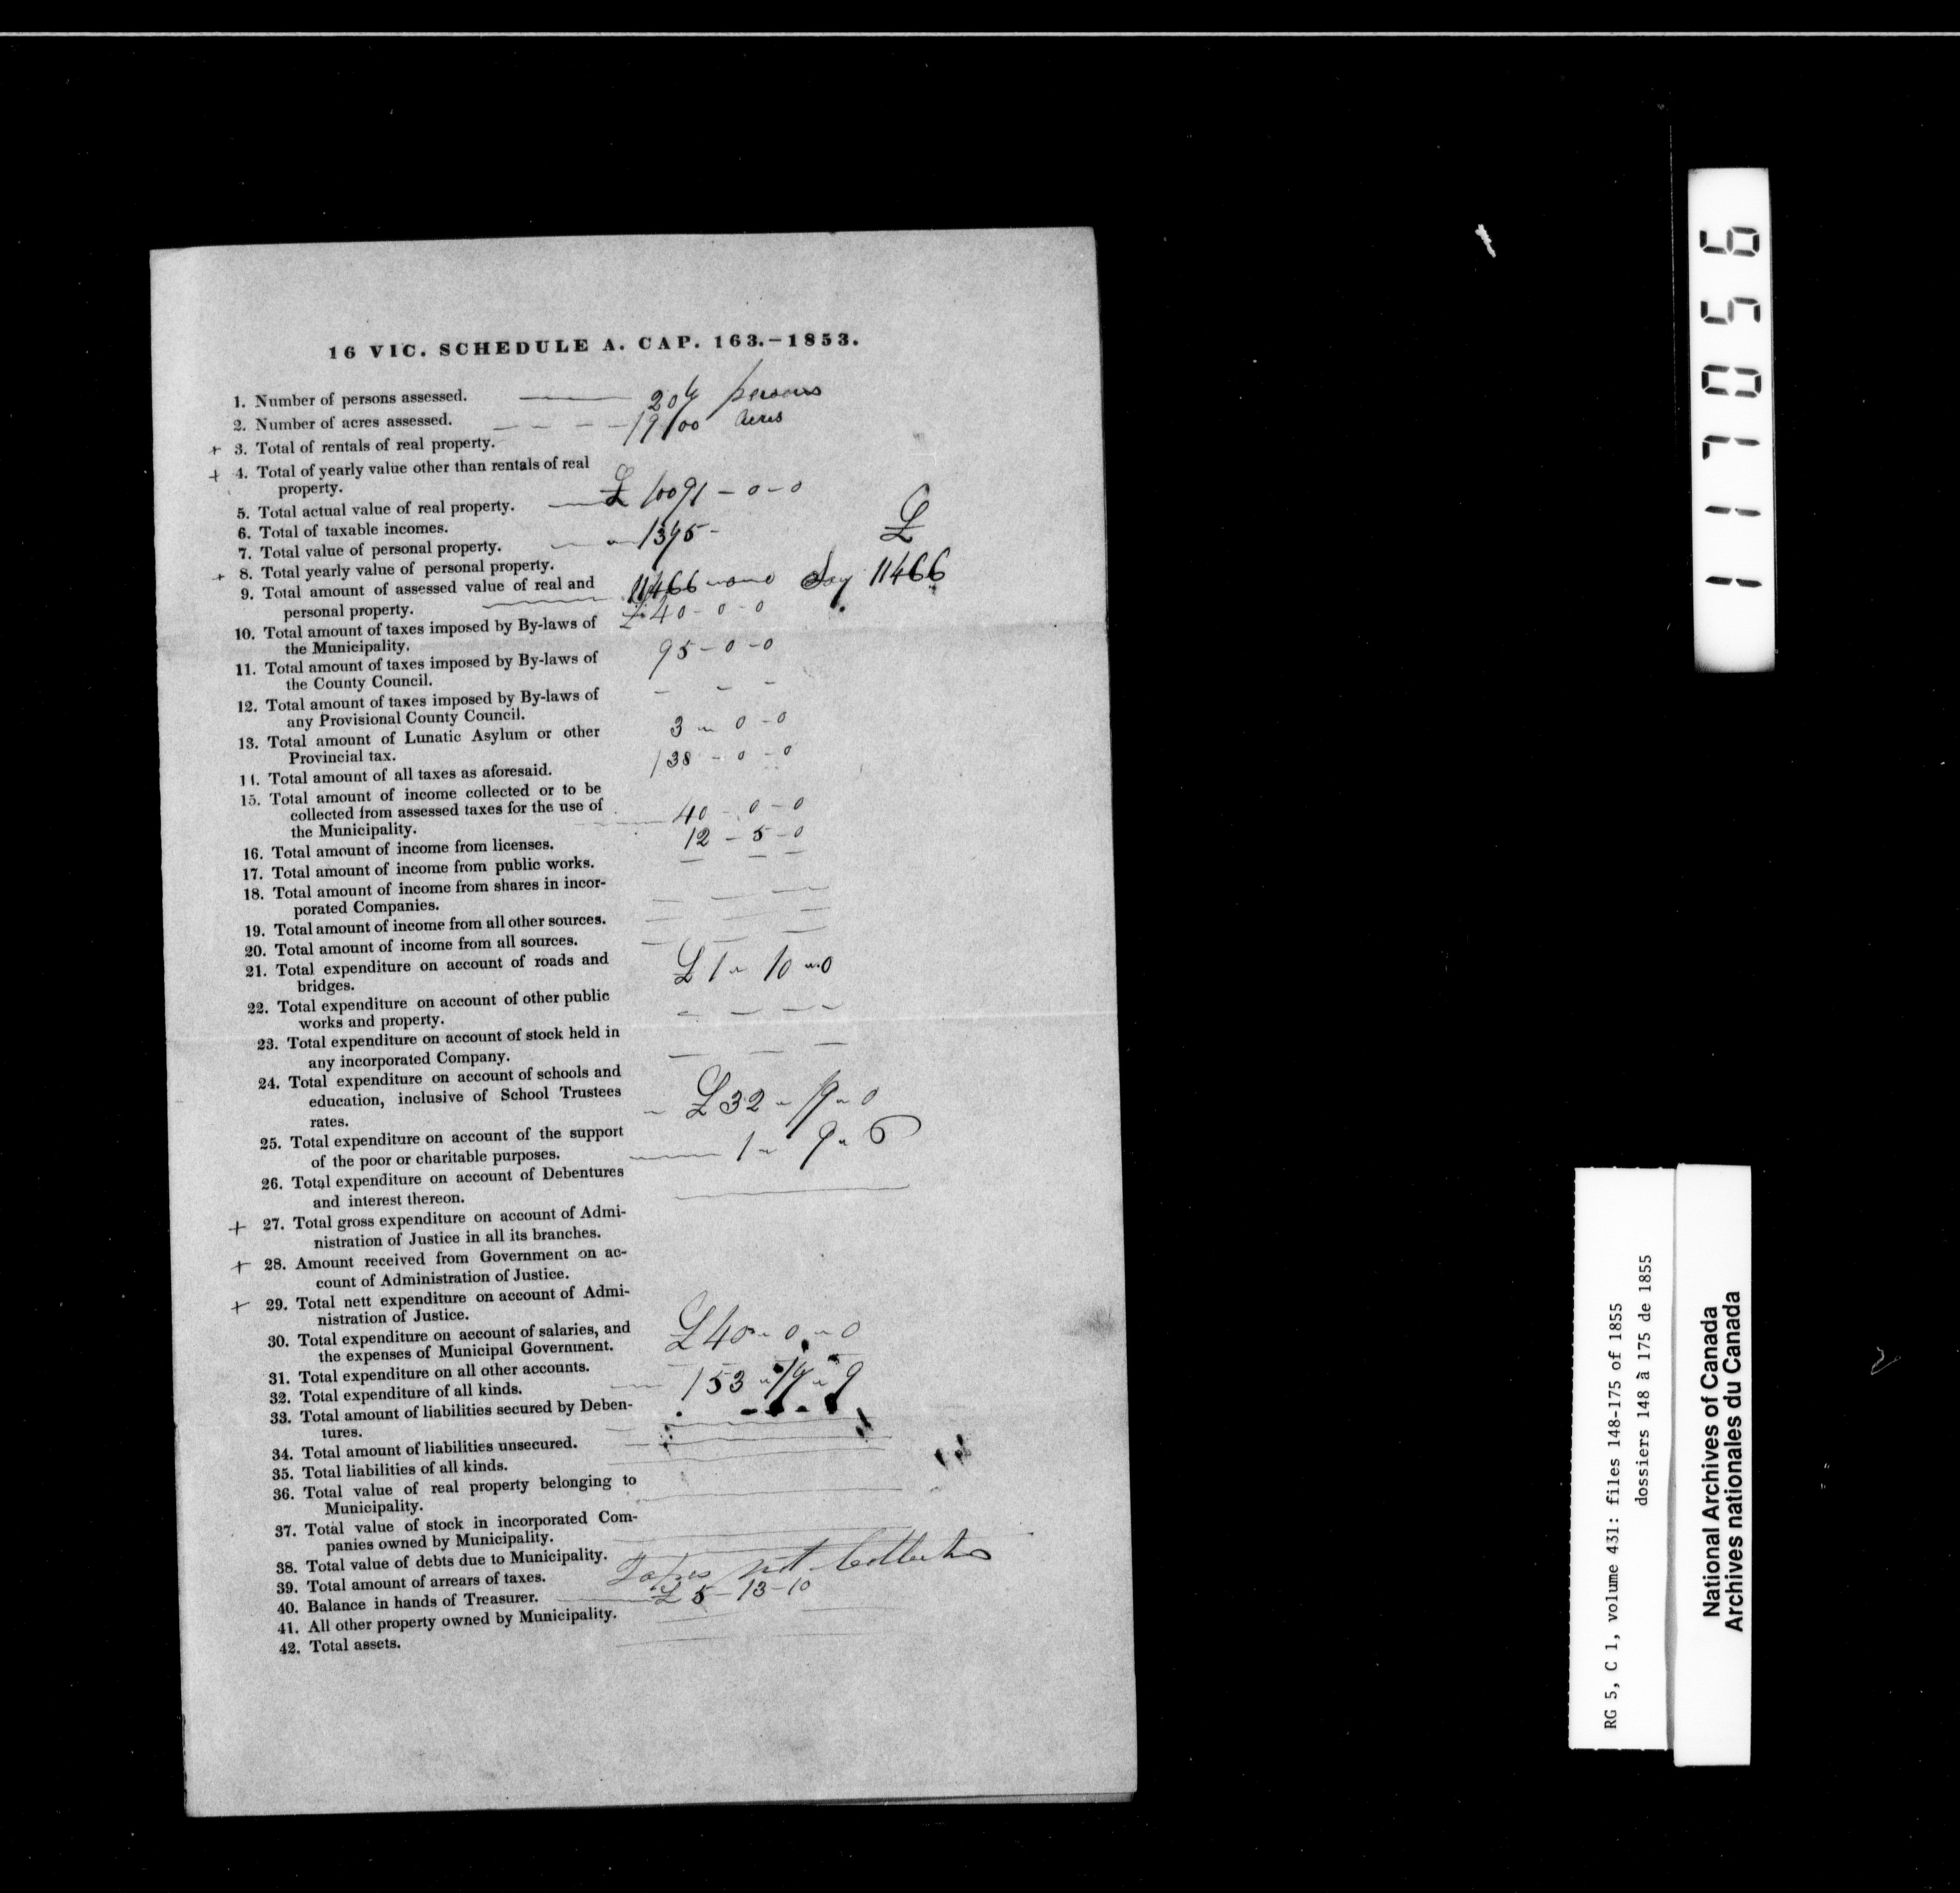 16 VIC. SCHEDULE A. CAP. 163.—1853.
1. Number of persons assessed. 204 persons
2. Number of acres assessed. 19100 acres
+ 3. Total of rentals of real property.
+ 4. Total of yearly value other than rentals of real
property.
5. Total actual value of real property. £ 10091 - 0 - 0
6. Total of taxable incomes.
7. Total value of personal property. 1375 -
+ 8. Total yearly value of personal property.
£
9. Total amount of assessed value of real and
personal property. 11466 - 0 - 0 Say 11466
10. Total amount of taxes imposed by By-laws of
the Municipality. £ 40 - 0 - 0
11. Total amount of taxes imposed by By-laws of
the County Council. 95 - 0 - 0
12. Total amount of taxes imposed by By-laws of
any Provisional County Council. - - -
13. Total amount of Lunatic Asylum or other
Provincial tax. 3 - 0 - 0
14. Total amount of all taxes as aforesaid. 138 - 0 - 0
15. Total amount of income collected or to be
collected from assessed taxes for the use of
the Municipality. 40 - 0 - 0
16. Total amount of income from licenses. 12 - 5 - 0
17. Total amount of income from public works. - - -
18. Total amount of income from shares in incor-
porated Companies. - - -
19. Total amount of income from all other sources.
20. Total amount of income from all sources.
21. Total expenditure on account of roads and
bridges. £ 1 - 10 - 0
22. Total expenditure on account of other public
works and property. - - - -
23. Total expenditure on account of stock held in
any incorporated Company. - - -
24. Total expenditure on account of schools and
education, inclusive of School Trustees
rates. £ 32 - 19 - 0
25. Total expenditure on account of the support
of the poor or charitable purposes. 1 - 9 - 6
26. Total expenditure on account of Debentures
and interest thereon.
+ 27. Total gross expenditure on account of Admi-
nistration of Justice in all its branches.
+ 28. Amount received from Government on ac-
count of Administration of Justice.
+ 29. Total nett expenditure on account of Admi-
nistration of Justice.
30. Total expenditure on account of salaries, and
the expenses of Municipal Government. £ 40 - 0 - 0
31. Total expenditure on all other accounts.
32. Total expenditure of all kinds. 153 - 9
33. Total amount of liabilities secured by Deben-
tures.
34. Total amount of liabilities unsecured.
35. Total liabilities of all kinds.
36. Total value of real property belonging to
Municipality.
37. Total value of stock in incorporated Com-
panies owned by Municipality.
38. Total value of debts due to Municipality.
39. Total amount of arrears of taxes. Taxes not Collected
40. Balance in hands of Treasurer. £ 5 - 13 - 10
41. All other property owned by Municipality.
42. Total assets.
117056
RG 5, C 1, volume 431: files 148-175 of 1855
dossiers 148 à 175 de 1855
National Archives of Canada
Archives nationales du Canada